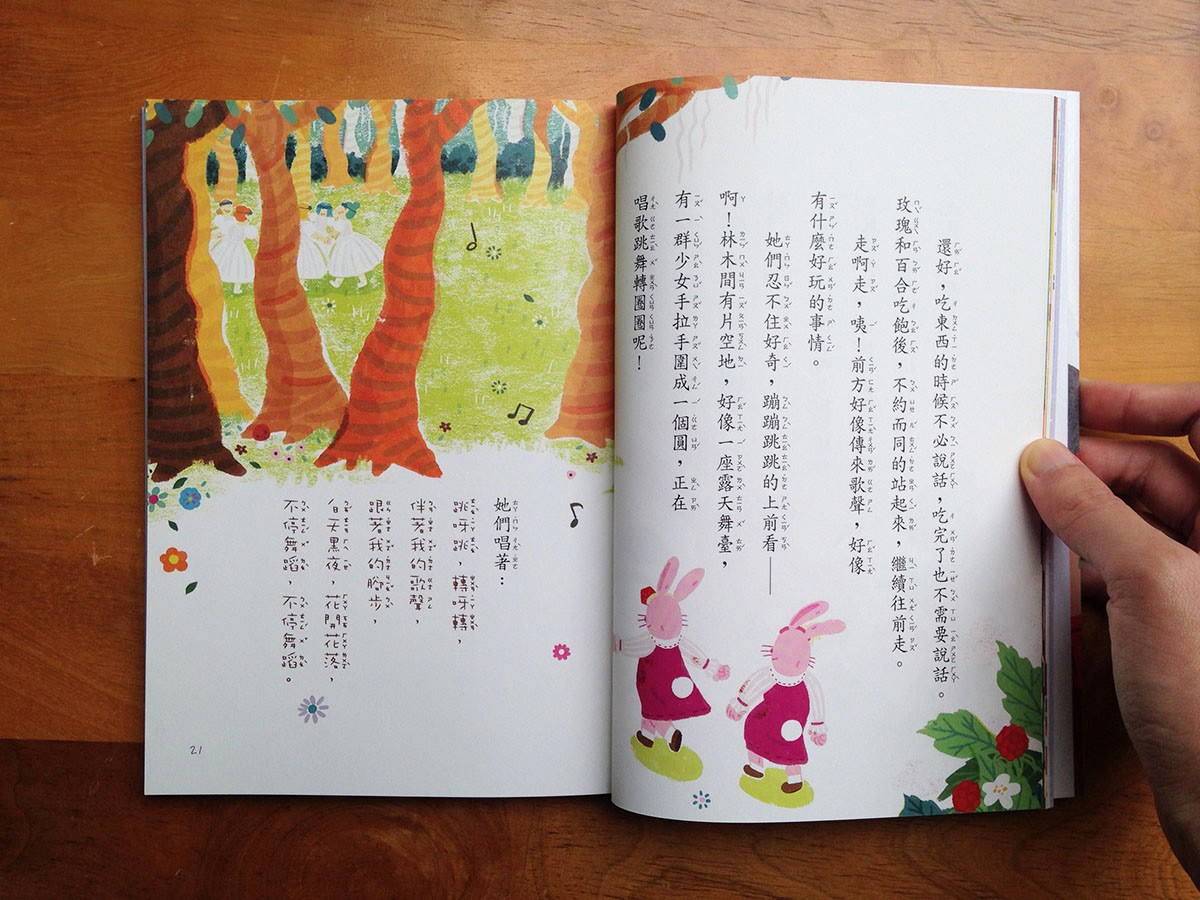 還好，吃東西的時候不必說話，吃完了也不需要說話。
玫瑰和百合吃飽後，不約而同的站起來，繼續往前走。
走啊走，咦！前方好像傳來歌聲，好像
有什麼好玩的事情。
她們忍不住好奇，蹦蹦跳跳的上前看——
啊！林木間有片空地，好像一座露天舞臺，
有一群少女手拉手圍成一個圓，正在
唱歌跳舞轉圈圈呢！
她們唱著：
跳呀跳，轉呀轉，
伴著我的歌聲，
跟著我的腳步，
白天黑夜，花開花落，
不停舞蹈，不停舞蹈。
21